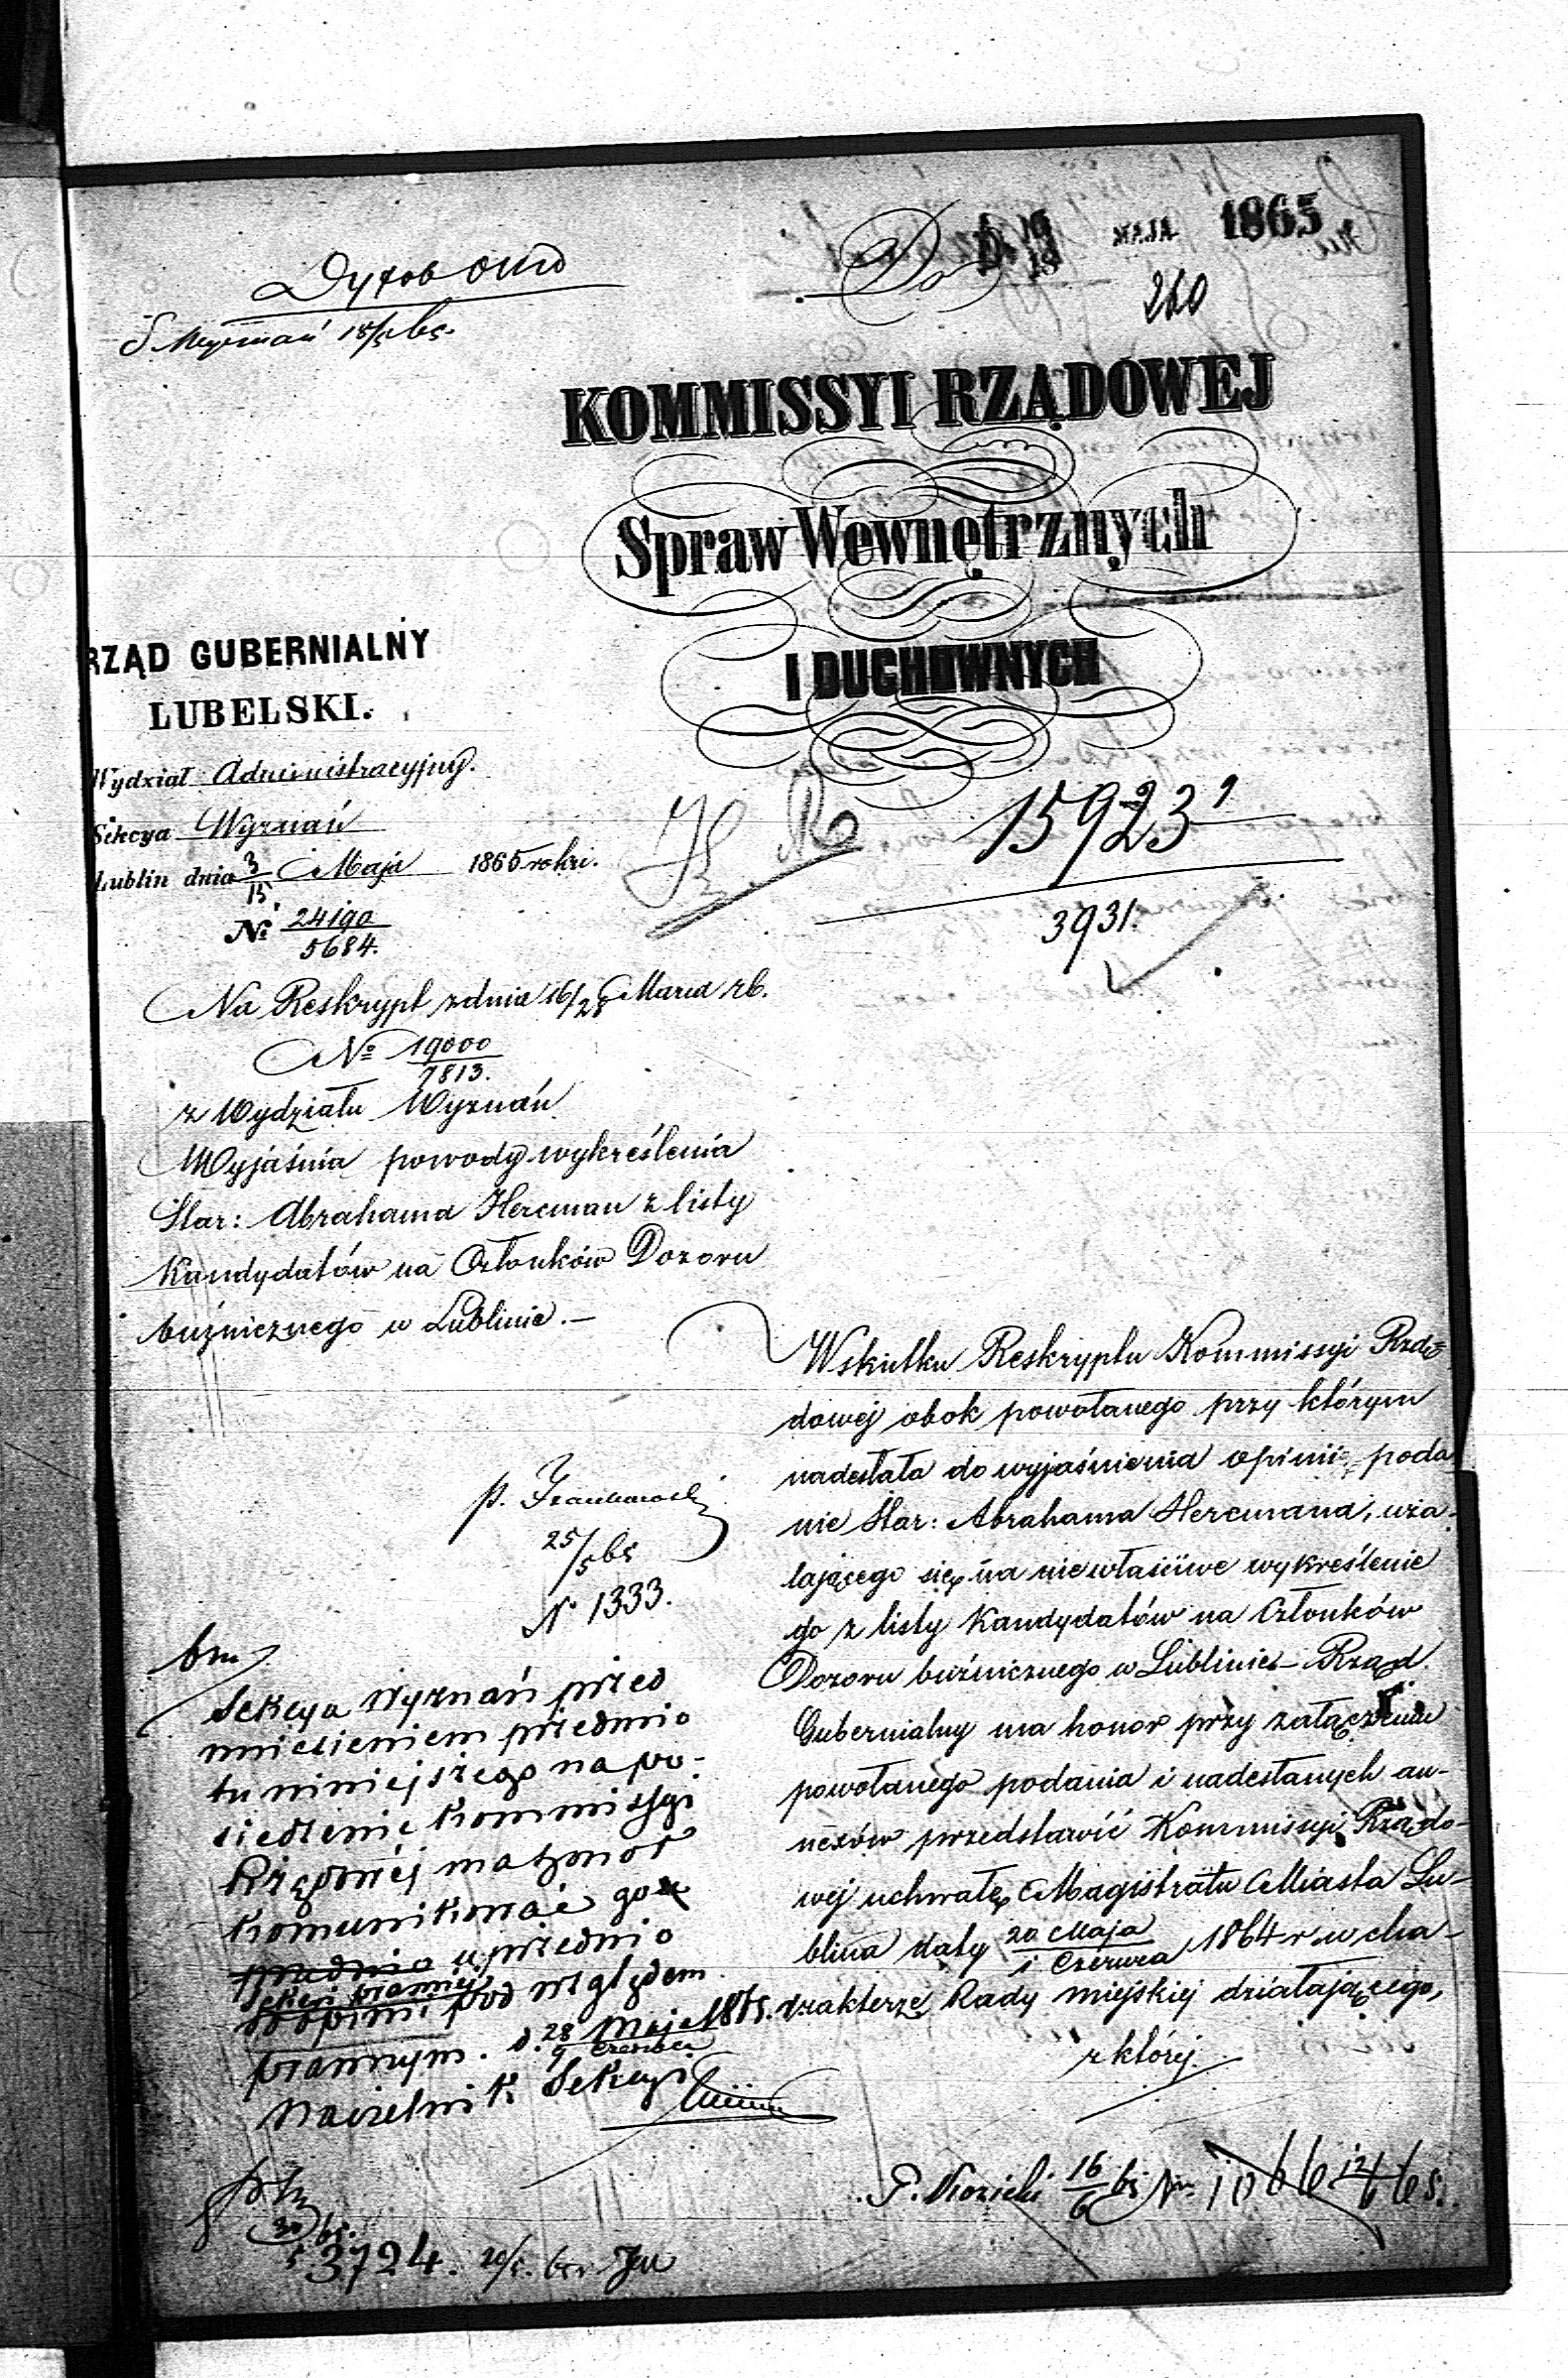 Do
MAJA 1865
260
S. Wyznań 18/5 65.
KOMMISSYI RZĄDOWEJ
Spraw Wewnętrznych
I DUCHOWNYCH
RZĄD GUBERNIALNY
LUBELSKI.
Wydział Administracyjny.
Sekcya Wyznań
Lublin dnia 3/15 Maja 1865 roku.
№ 24190/5684.
15923
3931.
Na Reskrypt z dnia 16/28 Marca rb.
№ 19000/7813.
z Wydziału Wyznań
Wyjaśnia powody wykreślenia
Star: Abrahama Hercman z listy
Kandydatów na Członków Dozoru
bużnicznego w Lublinie.—
Wskutku Reskryptu Kommissyi Rzą-
dowej obok powołanego przy którym
nadesłała do wyjaśnienia opinii, poda
nie Star: Abrahama Hercmana, uża-
lającego się na niewłaściwe wykreślenie
go z listy Kandydatów na Członków
Dozoru buźnicznego w Lublinie – Rząd
Gubernialny ma honor przy załączeniu
powołanego podania i nadesłanych an-
nexów przedstawić Kommissyi Rządo-
wej uchwałę Magistratu Miasta Lu-
blina daty 20 Maja/1 Czerwca 1864 r w cha-
rakterze Rady miejskiej działającego,
z której
25/5 65
N 1333.
Sekcya Wyznań przed
wniesieniem przedmio
tu niniejszego na po-
siedzenie Kommissyi
Rządowéj ma honor
komunikować go
uprzednio
Sekcji prawnej
do opinii pod względem
prawnym. d. 28 Maja/9 Czerwca 1865.
Naczelnik Sekcyi
P. Kozicki 16/6 65 № 1066
3724.